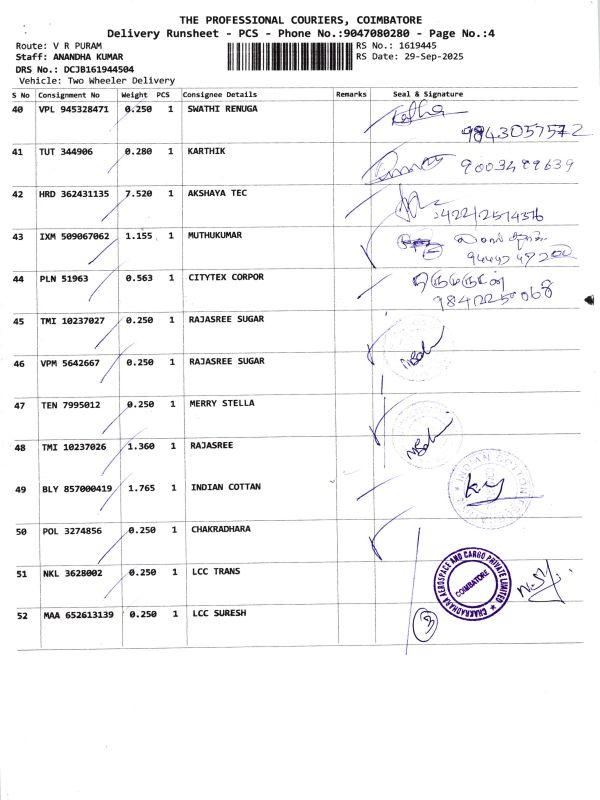 THE PROFESSIONAL COURIERS, COIMBATORE
Delivery Runsheet - PCS - Phone No.:9047080280 - Page No.:4
Route: V R PURAM
RS No.: 1619445
Staff: ANANDHA KUMAR
RS Date: 29-Sep-2025
DRS No.: DCJB161944504
Vehicle: Two Wheeler Delivery
S No Consignment No Weight PCS Consignee Details Remarks Seal & Signature
40 VPL 945328471 0.250 1 SWATHI RENUGA
9843057572
41 TUT 344906 0.280 1 KARTHIK
9003499639
42 HRD 362431135 7.520 1 AKSHAYA TEC
43 IXM 509067062 1.155 1 MUTHUKUMAR
44 PLN 51963 0.563 1 CITYTEX CORPOR
45 TMI 10237027 0.250 1 RAJASREE SUGAR
46 VPM 5642667 0.250 1 RAJASREE SUGAR
47 TEN 7995012 0.250 1 MERRY STELLA
48 TMI 10237026 1.360 1 RAJASREE
49 BLY 857000419 1.765 1 INDIAN COTTAN
INDIAN COTTON
50 POL 3274856 0.250 1 CHAKRADHARA
51 NKL 3628002 0.250 1 LCC TRANS
CHAKRADHARA AEROSPACE AND CARGO PRIVATE LIMITED
COIMBATORE
52 MAA 652613139 0.250 1 LCC SURESH
3